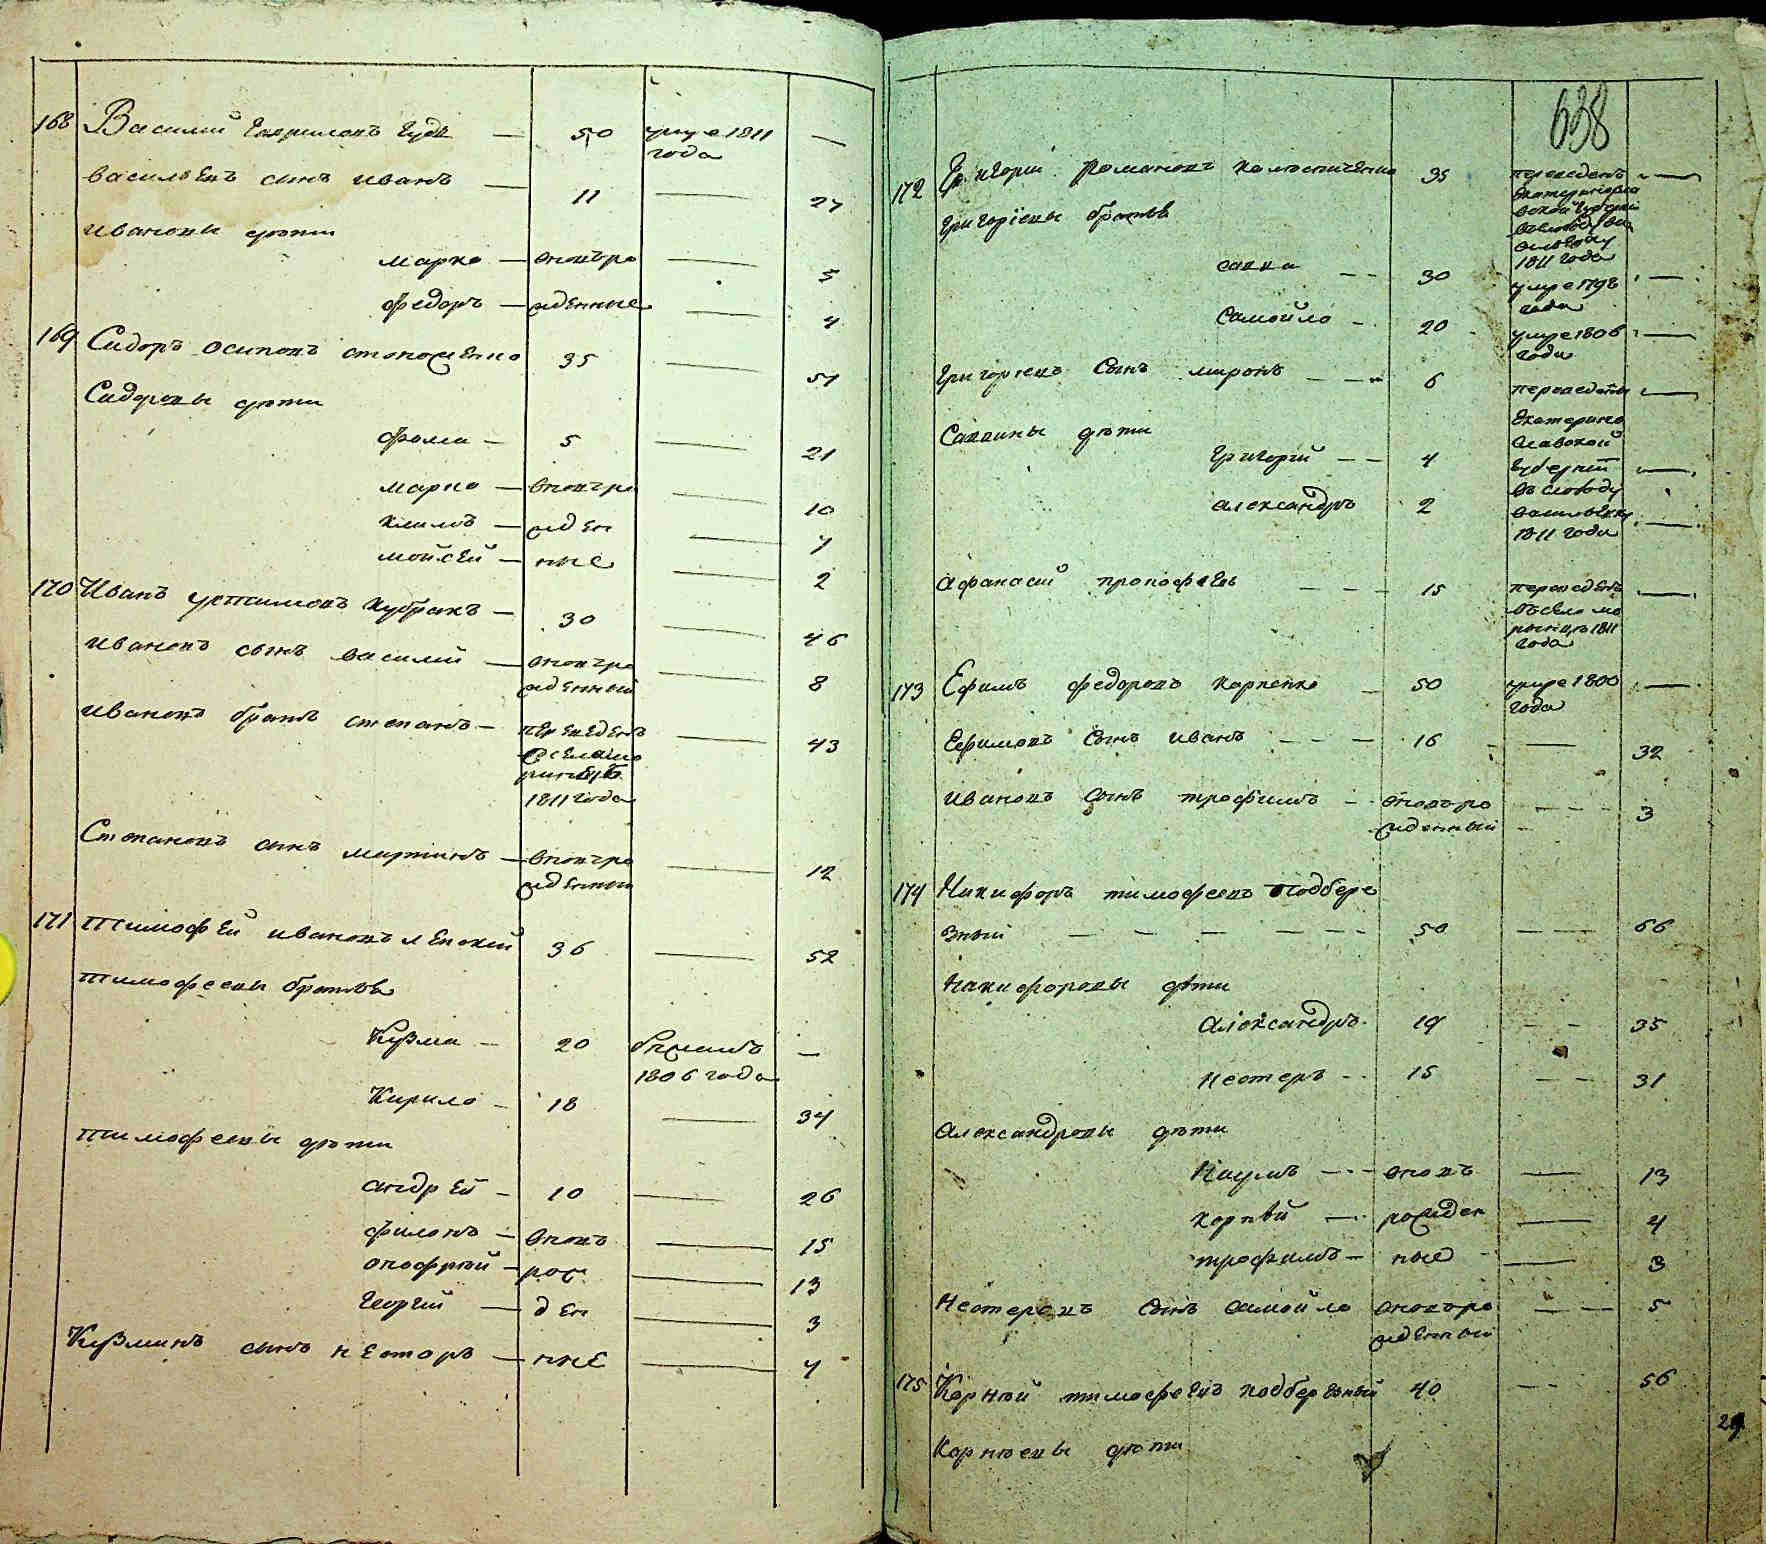 168 Василий Гавриловъ Гуда — 50 умре 1811 —
года
васильевъ сынъ иванъ — 11 — 27
ивановы дѣти
марко — вновъро — 5
федоръ — жденные — 4
169 Сидоръ осиповъ 35 — 51
Сидоровы дѣти
фома — 5 — 21
марко — вновъро — 10
климъ — жден — 7
мойсей — ные — 2
170 Иванъ устимовъ кубракъ — 30 — 46
ивановъ сынъ василий — вновъро — 8
жденный
ивановъ братъ степанъ — переведенъ — 43
1811 года
Степановъ сынъ мартинъ — вновъро — 12
жденный
171 тимофей ивановъ 36 — 52
тимофеевы братья
Кузма — 20 бежалъ —
1806 года
Кирило — 18 — 34
тимофеевы дѣти
андрей — 10 — 26
филонъ — вновъ — 15
онофрий — рож — 13
георгий — ден — 3
Кузминъ сынъ несторъ — ные — 7
638
172 Григорий романовъ 35 переведенъ —
Екатеринослав
ской губернии
Григориевы братья
1811 года
савка — 30 умре 1798 —
года
Самойло — 20 умре 1806 —
года
Григориевъ Сынъ миронъ — 6 переведены —
Екатерино
Саввины дѣти
славской
Григорий — 4 губернии —
въ слободу
александръ 2 васильевку —
1811 года
афанасий прокофьевъ — 15 переведенъ —
въ село ма
ринцъ 1811
года
173 Ефимъ федоровъ карпенко — 50 умре 1800 —
года
Ефимовъ Сынъ иванъ — 16 — 32
ивановъ Сынъ трофимъ — вновъро — 3
жденный
174 Никифоръ тимофеевъ подбере
зный — 50 — 66
Никифоровы дѣти
Александръ 19 — 35
Несторъ — 15 — 31
Александровы дѣти
Наумъ — вновъ — 13
корнѣй — рожден — 4
трофимъ — ные — 3
Несторовъ Сынъ самойло вновъро — 5
жденный
175 Корнѣй тимофеевъ подберезный 40 — 56
29
Корнѣевы дѣти